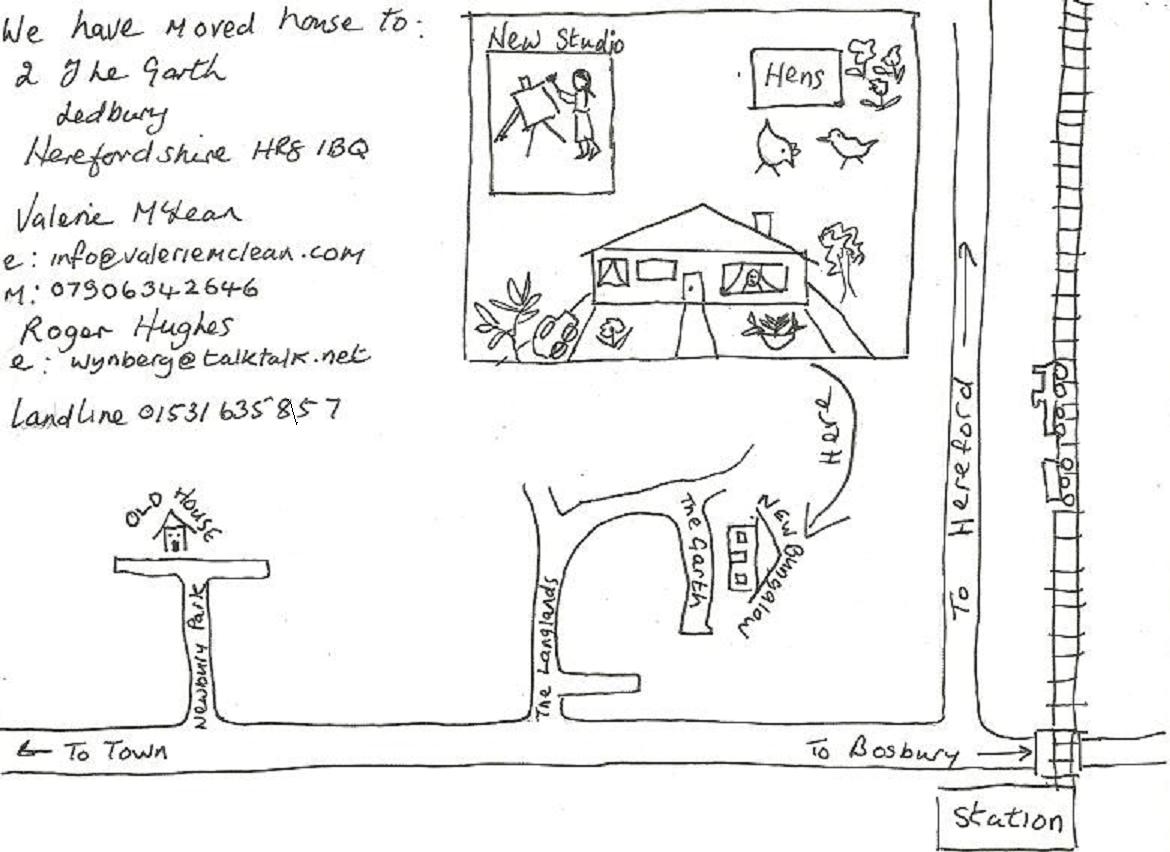 We have moved house to:
2 The Garth
Ledbury
Herefordshire HR8 1BQ
Valerie McLean
e: info@valeriemclean.com
M: 07906342646
Roger Hughes
e: wynberg@talktalk.net
Landline 01531 635857
New Studio
Hens
Here
OLD HOUSE
Newbury Park
The Langlands
The Garth
New Bungalow
To Hereford
← To Town
To Bosbury →
Station